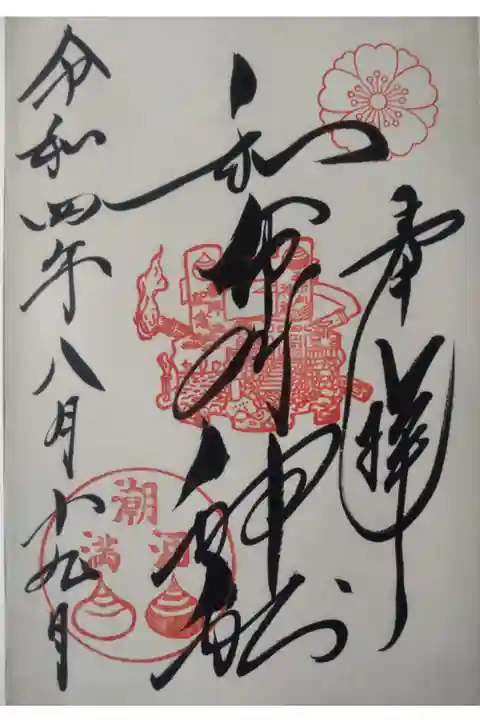 奉拝
和布刈神社
令和四年八月十九日
潮
満
涸